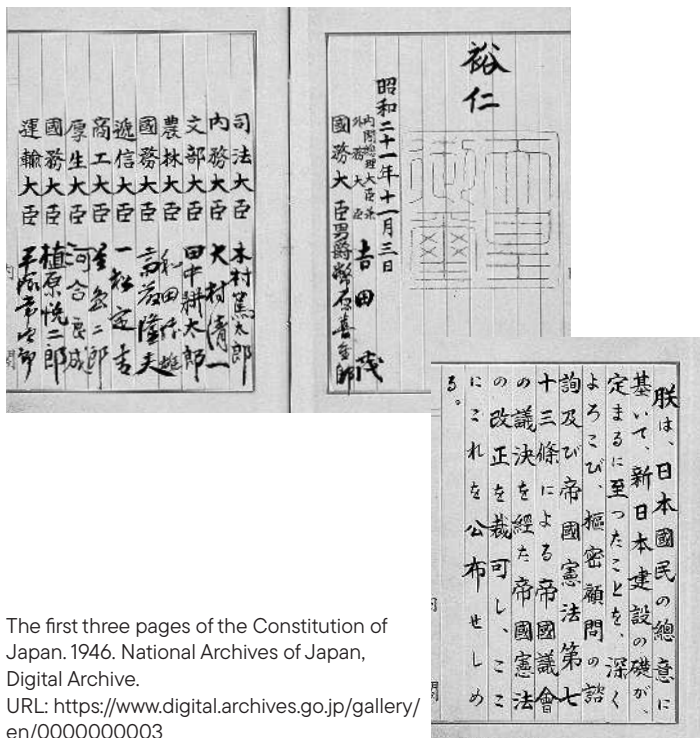 裕仁
天皇
御璽
昭和二十一年十一月三日
内閣總理大臣兼
外務大臣 吉田茂
國務大臣 男爵幣原喜重郎
司法大臣 木村篤太郎
内務大臣 大村清一
文部大臣 田中耕太郎
農林大臣 和田博雄
國務大臣 斎藤隆夫
遞信大臣 一松定吉
商工大臣 星島二郎
厚生大臣 河合良成
國務大臣 植原悦二郎
運輸大臣 平塚常次郎
朕は、日本國民の總意に
基いて、新日本建設の礎が、
定まるに至つたことを、深く
よろこび、樞密顧問の諮
詢及び帝國憲法第七
十三條による帝國議會
の議決を經た帝國憲法
の改正を裁可し、ここ
にこれを公布せしめ
る。
The first three pages of the Constitution of
Japan. 1946. National Archives of Japan,
Digital Archive.
URL: https://www.digital.archives.go.jp/gallery/
en/0000000003